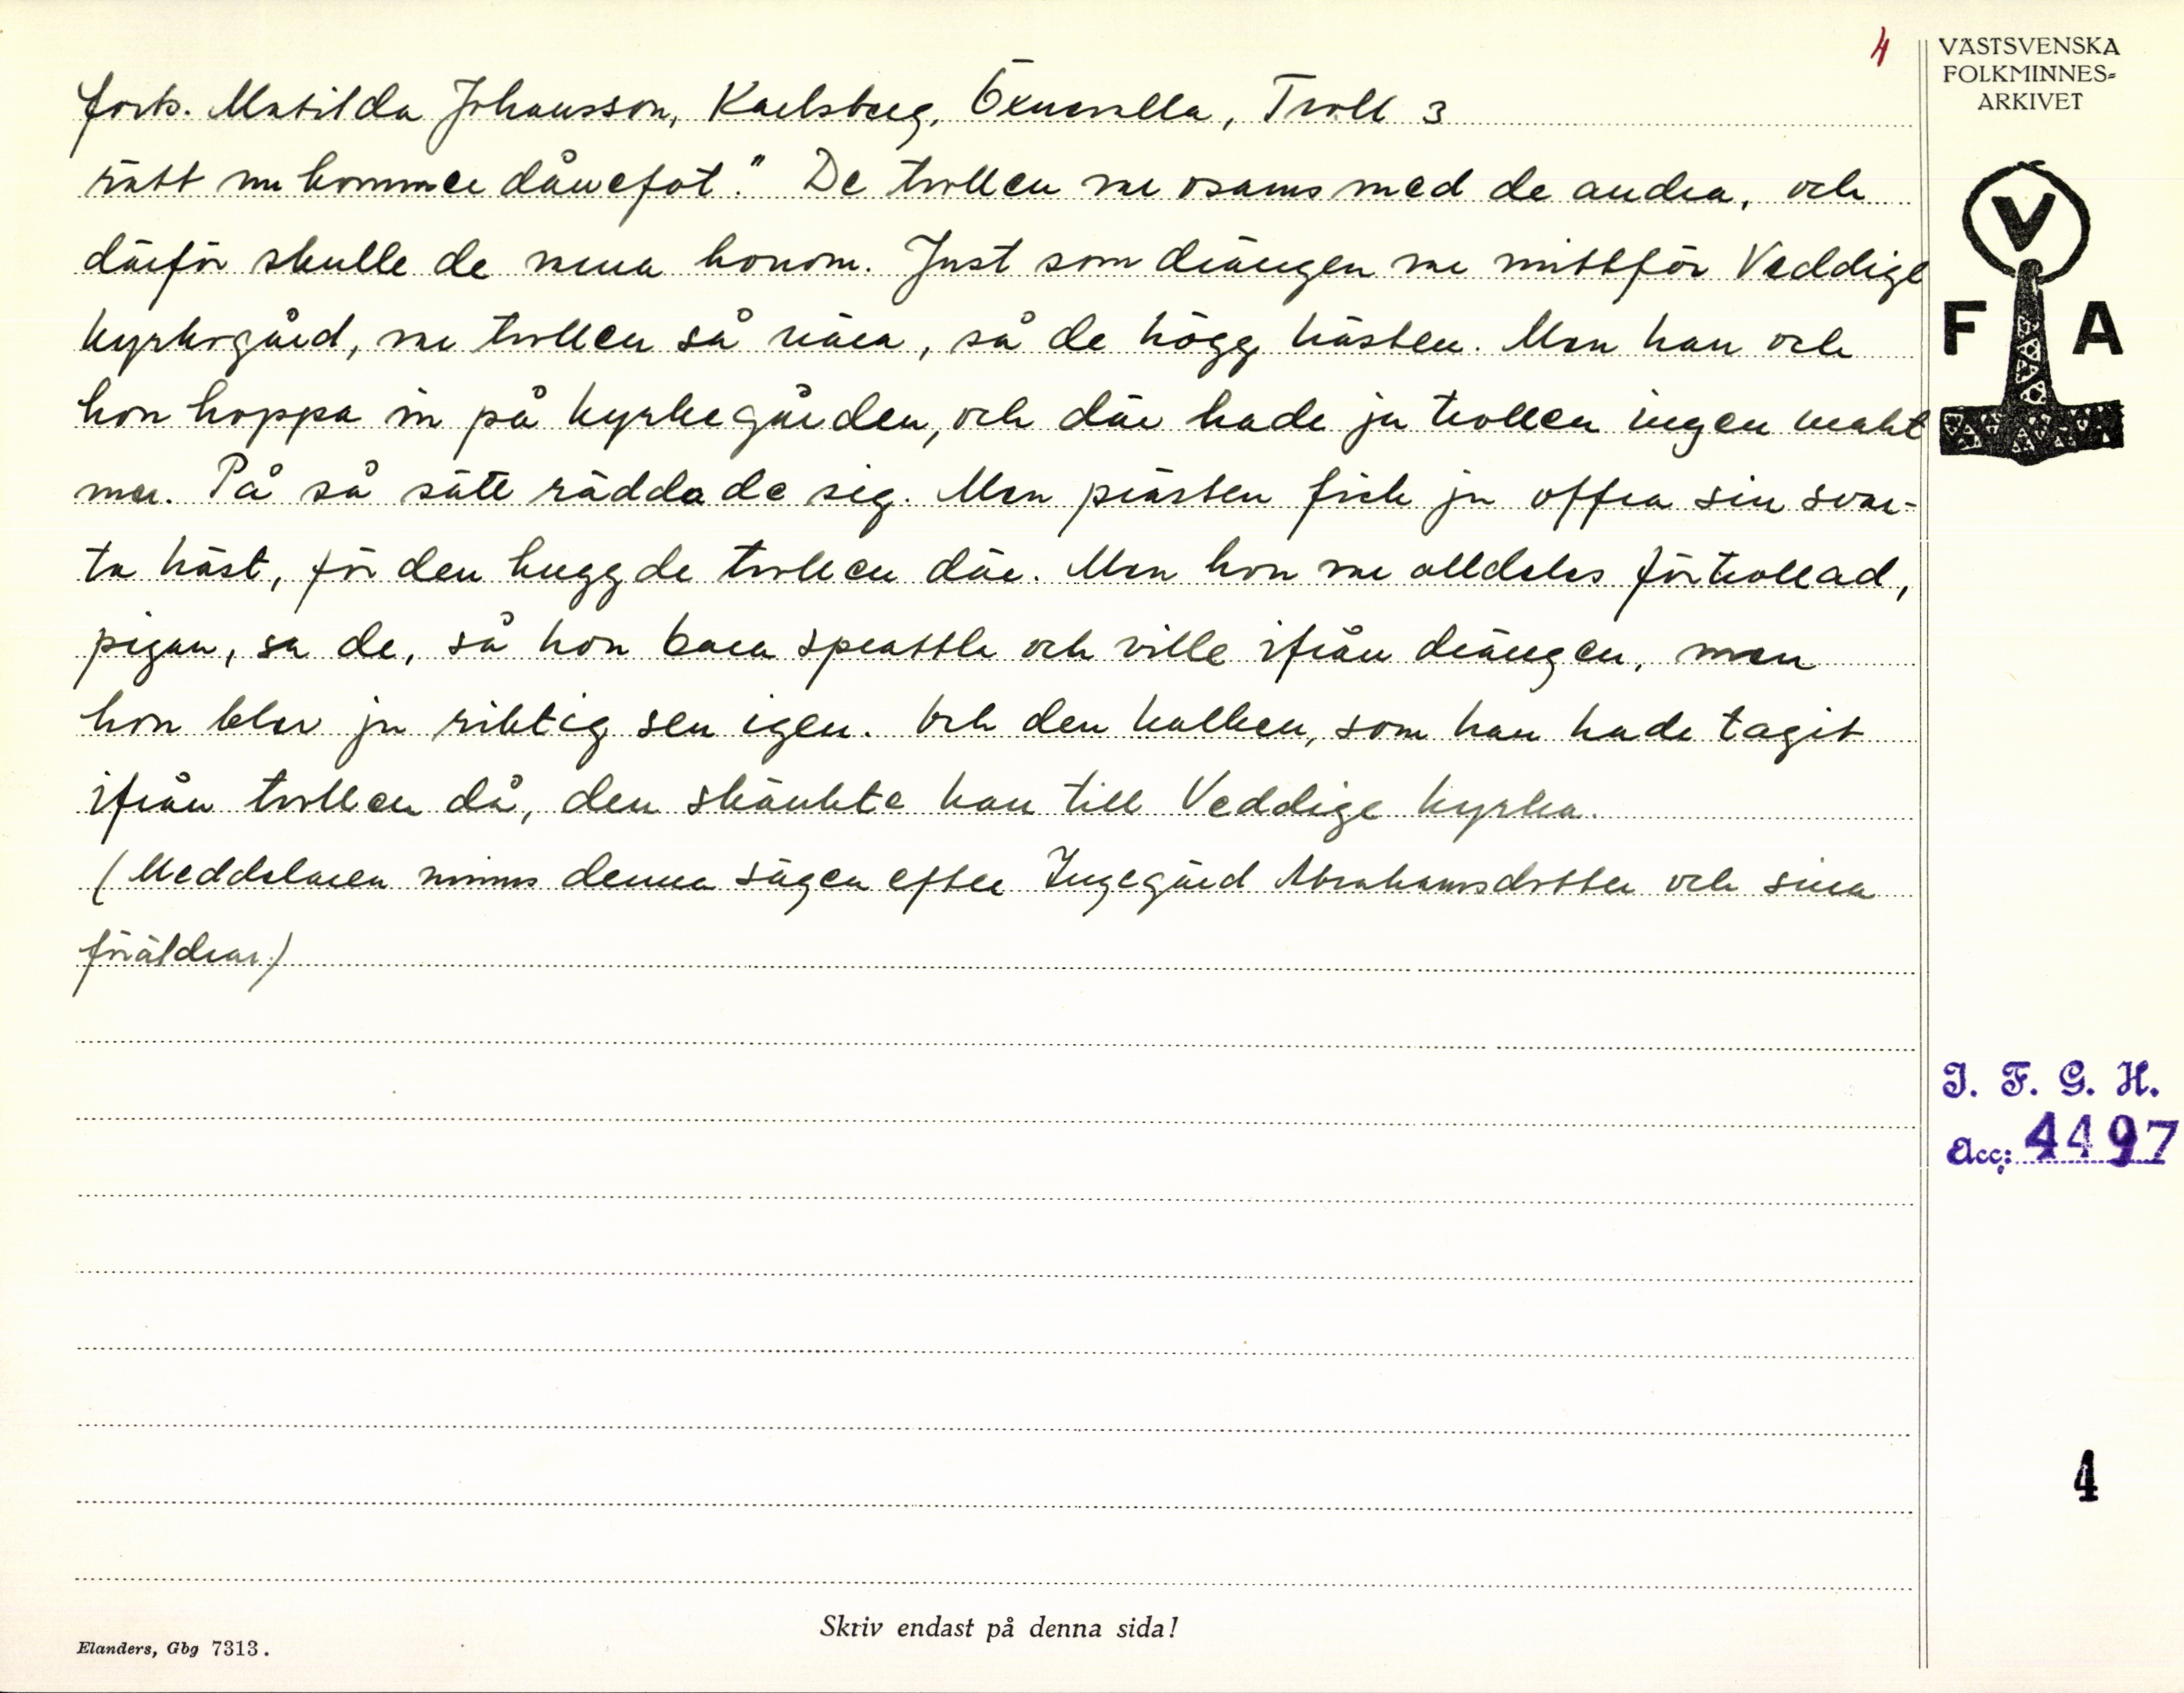 4
VÄSTSVENSKA
FOLKMINNES-
ARKIVET
forts. Matilda Johansson, Karlsberg, Öxnevalla, Troll 3
rätt nu kommer dånefot." De trollen var osams med de andra, och
därför skulle de varna honom. Just som drängen var mittför Veddige
kyrkogård, var trollen så nära, så de högg hästen. Men han och
hon hoppa in på kyrkegården, och där hade ju trollen ingen makt
mer. På så sätt rädda de sig. Men prästen fick ju offra sin svar-
ta häst, för den huggde trollen där. Men hon var alldeles förtrollad,
pigan, sa de, så hon bara sprattla och ville ifrån drängen, men
hon blev ju riktig sen igen. Och den kalken, som han hade tagit
ifrån trollen då, den skänkte han till Veddige kyrka.
(Meddelaren minns denna sägen efter Ingegärd Abrahamsdotter och sina
föräldrar.)
V
F A
I. F. G. H.
Acc: 4497
4
Skriv endast på denna sida!
Elanders, Gbg 7313.